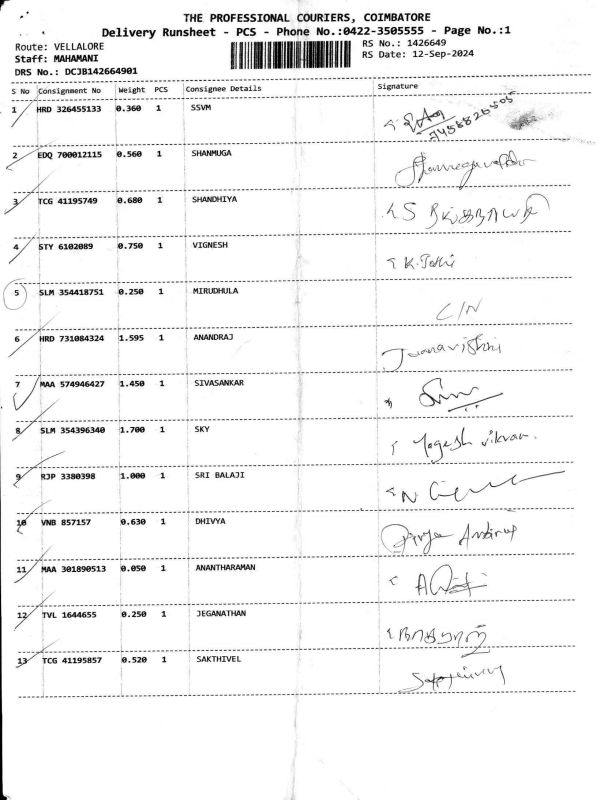 THE PROFESSIONAL COURIERS, COIMBATORE
Delivery Runsheet - PCS - Phone No.:0422-3505555 - Page No.:1
Route: VELLALORE RS No.: 1426649
Staff: MAHAMANI RS Date: 12-Sep-2024
DRS No.: DCJB142664901
S No Consignment No Weight PCS Consignee Details Signature
1 HRD 326455133 0.360 1 SSVM
2 EDQ 700012115 0.560 1 SHANMUGA
3 TCG 41195749 0.680 1 SHANDHIYA
4 STY 6102089 0.750 1 VIGNESH
5 SLM 354418751 0.250 1 MIRUDHULA C/N
6 HRD 731084324 1.595 1 ANANDRAJ
7 MAA 574946427 1.450 1 SIVASANKAR
8 SLM 354396340 1.700 1 SKY Yogesh vikram.
9 RJP 3380398 1.000 1 SRI BALAJI
10 VNB 857157 0.630 1 DHIVYA
11 MAA 301890513 0.050 1 ANANTHARAMAN
12 TVL 1644655 0.250 1 JEGANATHAN
13 TCG 41195857 0.520 1 SAKTHIVEL